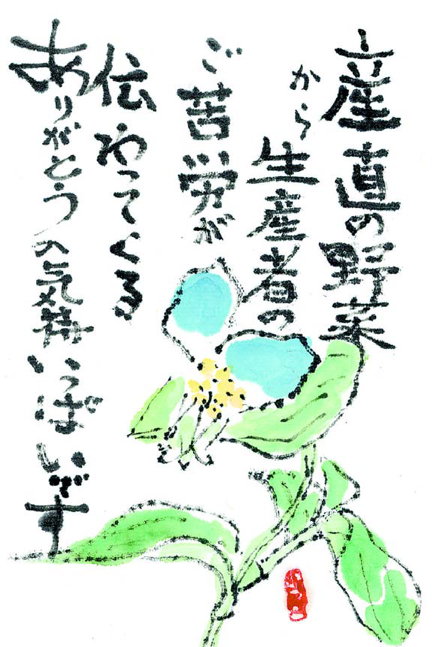 産直の野菜
から生産者の
ご苦労が
伝わってくる
ありがとうの気持いっぱいです